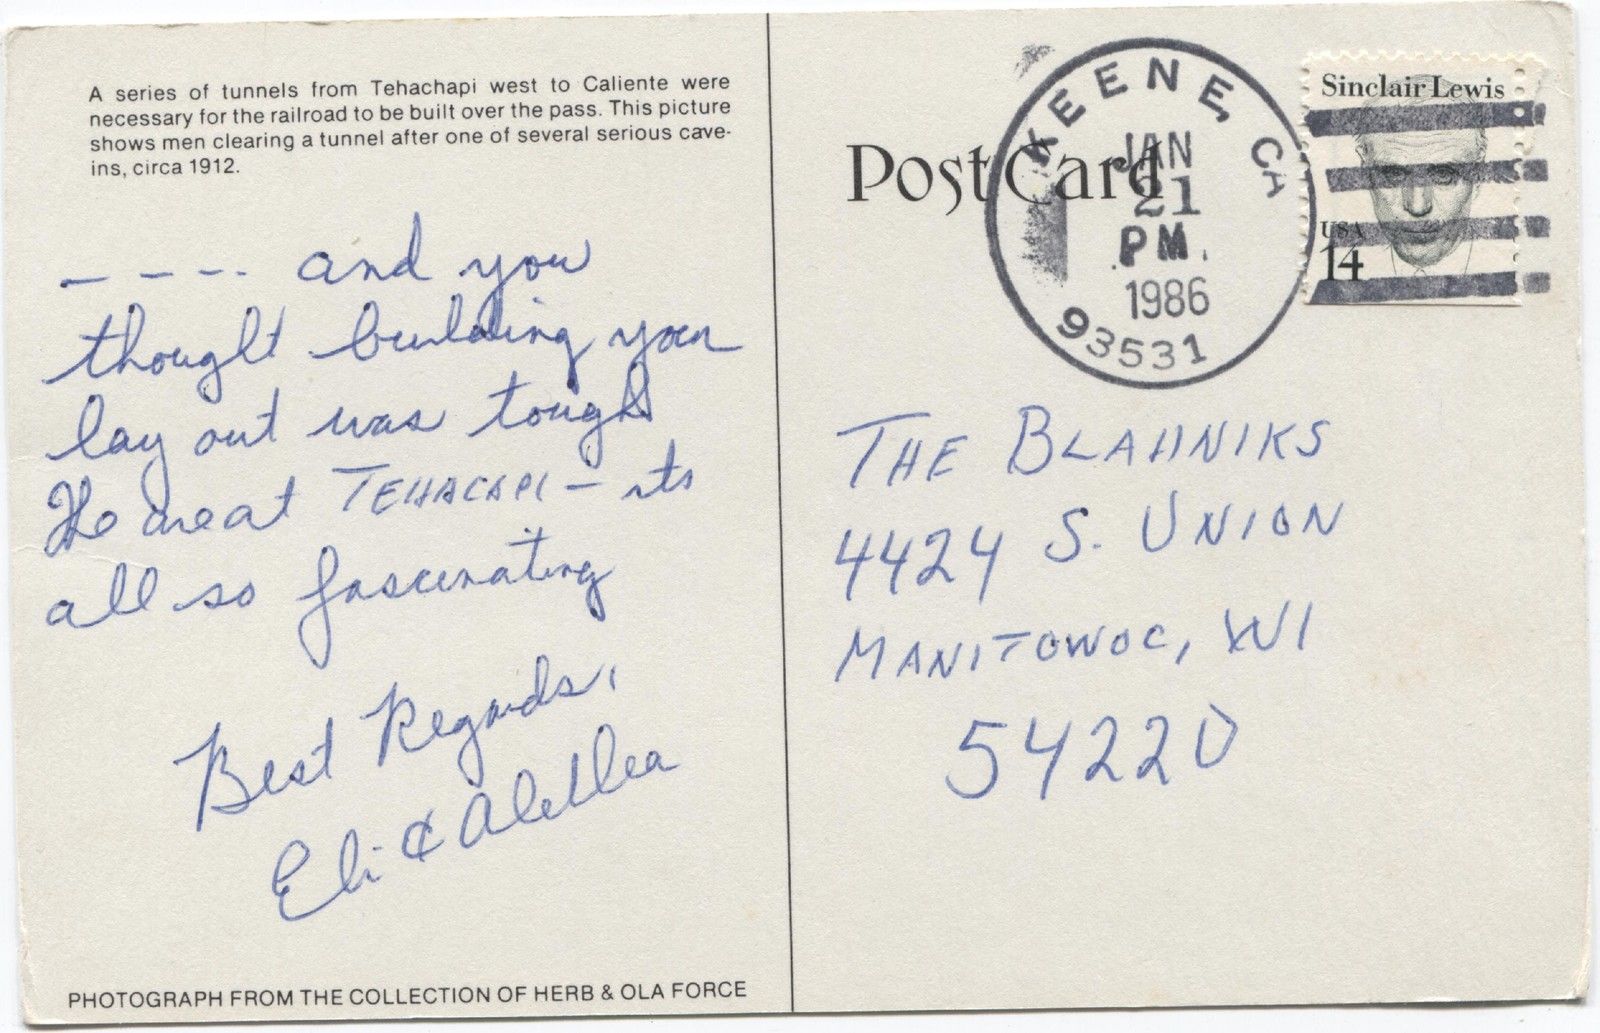 A series of tunnels from Tehachapi west to Caliente were
necessary for the railroad to be built over the pass. This picture
shows men clearing a tunnel after one of several serious cave-
ins, circa 1912.
---- and you
thought building your
lay out was tough
We are at TEHACAPI - its
all so fascinating
Best Regards,
Eli & Alethea
PHOTOGRAPH FROM THE COLLECTION OF HERB & OLA FORCE
Post Card
KEENE, CA
JAN
21
PM
1986
93531
Sinclair Lewis
USA
14
THE BLAHNIKS
4424 S. UNION
MANITOWOC, WI
54220